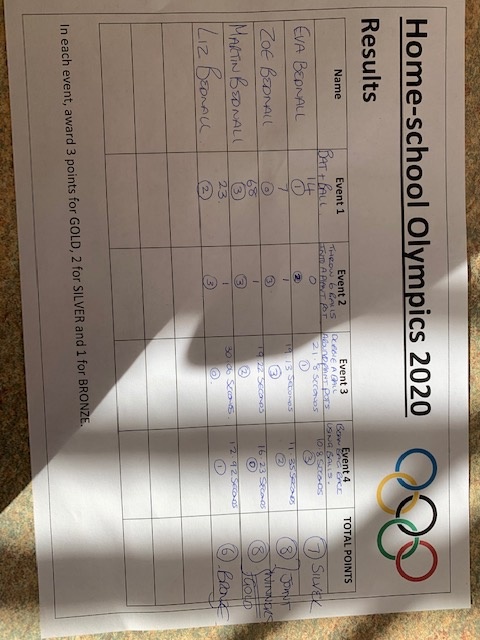 Home-school Olympics 2020
Results
Name Event 1 Event 2 Event 3 Event 4 TOTAL POINTS
BAT + BALL THROW 6 BALLS DRIBBLE A BALL BEAN BAG RACE
INTO A PLANT POT AROUND PLANT POTS USING BALLS.
EVA BEDNALL 14 0 21.8 SECONDS 10.8 SECONDS 7 SILVER
1 2 1 3
ZOE BEDNALL 7 1 19.13 SECONDS 11.35 SECONDS 8 JOINT
0 3 3 2 WINNERS
MARTIN BEDNALL 68 1 19.22 SECONDS 16.23 SECONDS 8 GOLD
3 3 2 0
LIZ BEDNALL 23 1 30.06 SECONDS. 12.92 SECONDS 6 BRONZE
2 3 0 1
In each event, award 3 points for GOLD, 2 for SILVER and 1 for BRONZE.